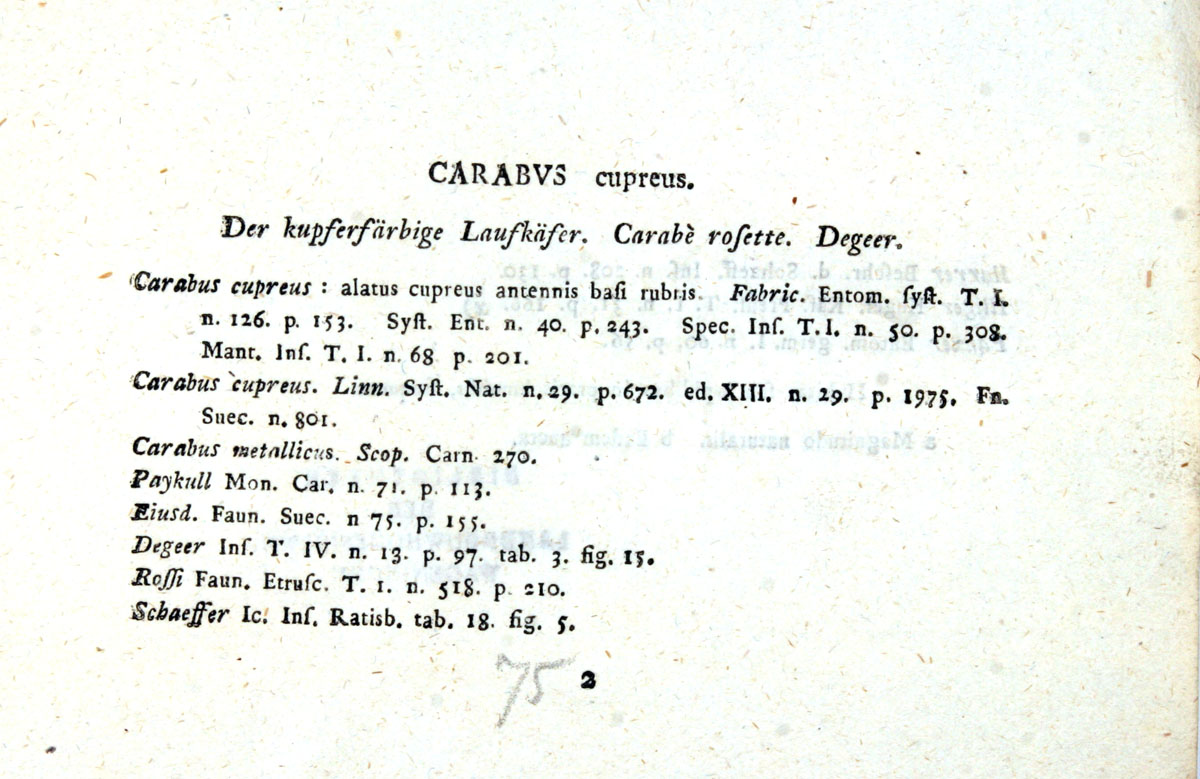 CARABVS cupreus.
Der kupferfärbige Laufkäfer. Carabè roſette. Degeer.
Carabus cupreus : alatus cupreus antennis baſi rubris. Fabric. Entom. ſyſt. T. I.
n. 126. p. 153. Syſt. Ent. n. 40. p. 243. Spec. Inſ. T. I. n. 50. p. 308.
Mant. Inſ. T. I. n. 68 p. 201.
Carabus cupreus. Linn. Syſt. Nat. n. 29. p. 672. ed. XIII. n. 29. p. 1975. Fn.
Suec. n. 801.
Carabus metallicus. Scop. Carn 270.
Paykull Mon. Car. n. 71. p. 113.
Eiusd. Faun. Suec. n 75. p. 155.
Degeer Inſ. T. IV. n. 13. p. 97. tab. 3. fig. 15.
Roſſi Faun. Etruſc. T. 1. n. 518. p. 210.
Schaeffer Ic. Inſ. Ratisb. tab. 18. fig. 5.
75 2